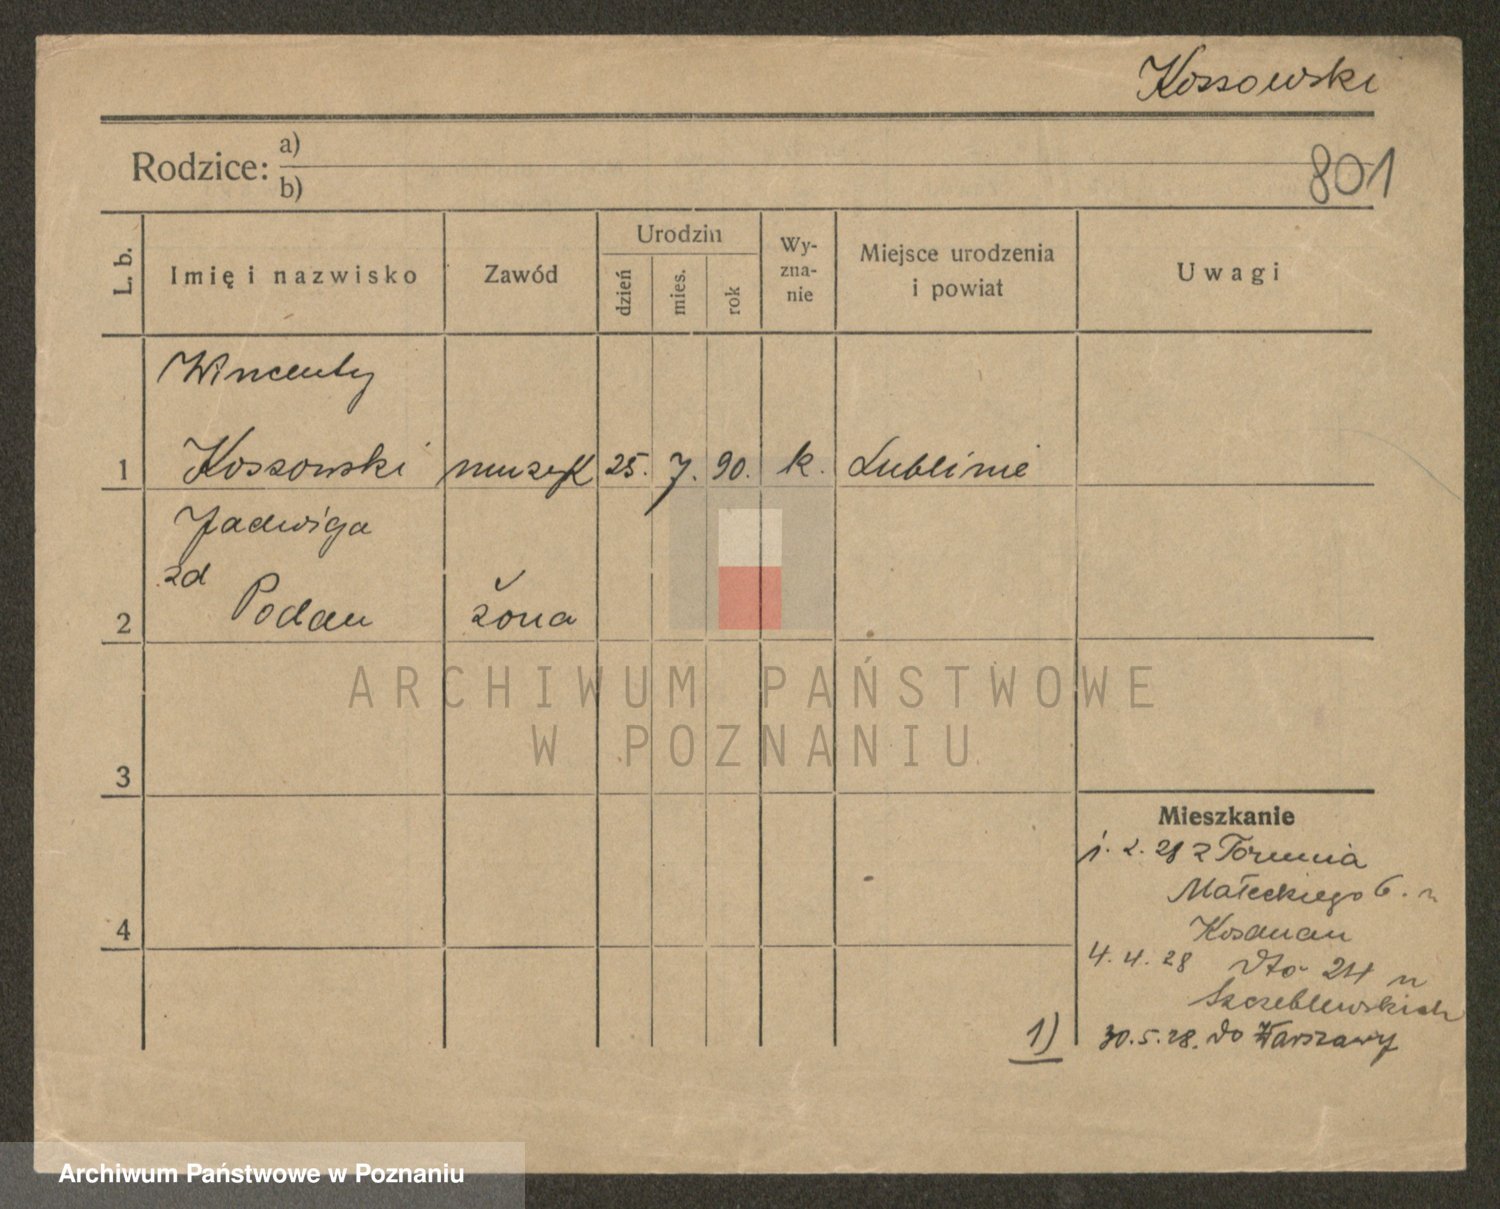 Kossowski
Rodzice: a)
b)
801
L. b.
Imię i nazwisko
Zawód
Urodzin
dzień
mies.
rok
Wy-
zna-
nie
Miejsce urodzenia
i powiat
Uwagi
Wincenty
1 Kossowski muzyk 25. 7. 90. k. Lublinie
Jadwiga
zd
2 Podau żona
3
4
Mieszkanie
1. 2. 28 z Torunia
Małeckiego 6. n
4. 4. 28 dto 24 n
Szczeblewskich
1) 30.5.28. do Warszawy
ARCHIWUM PAŃSTWOWE
W POZNANIU
Archiwum Państwowe w Poznaniu